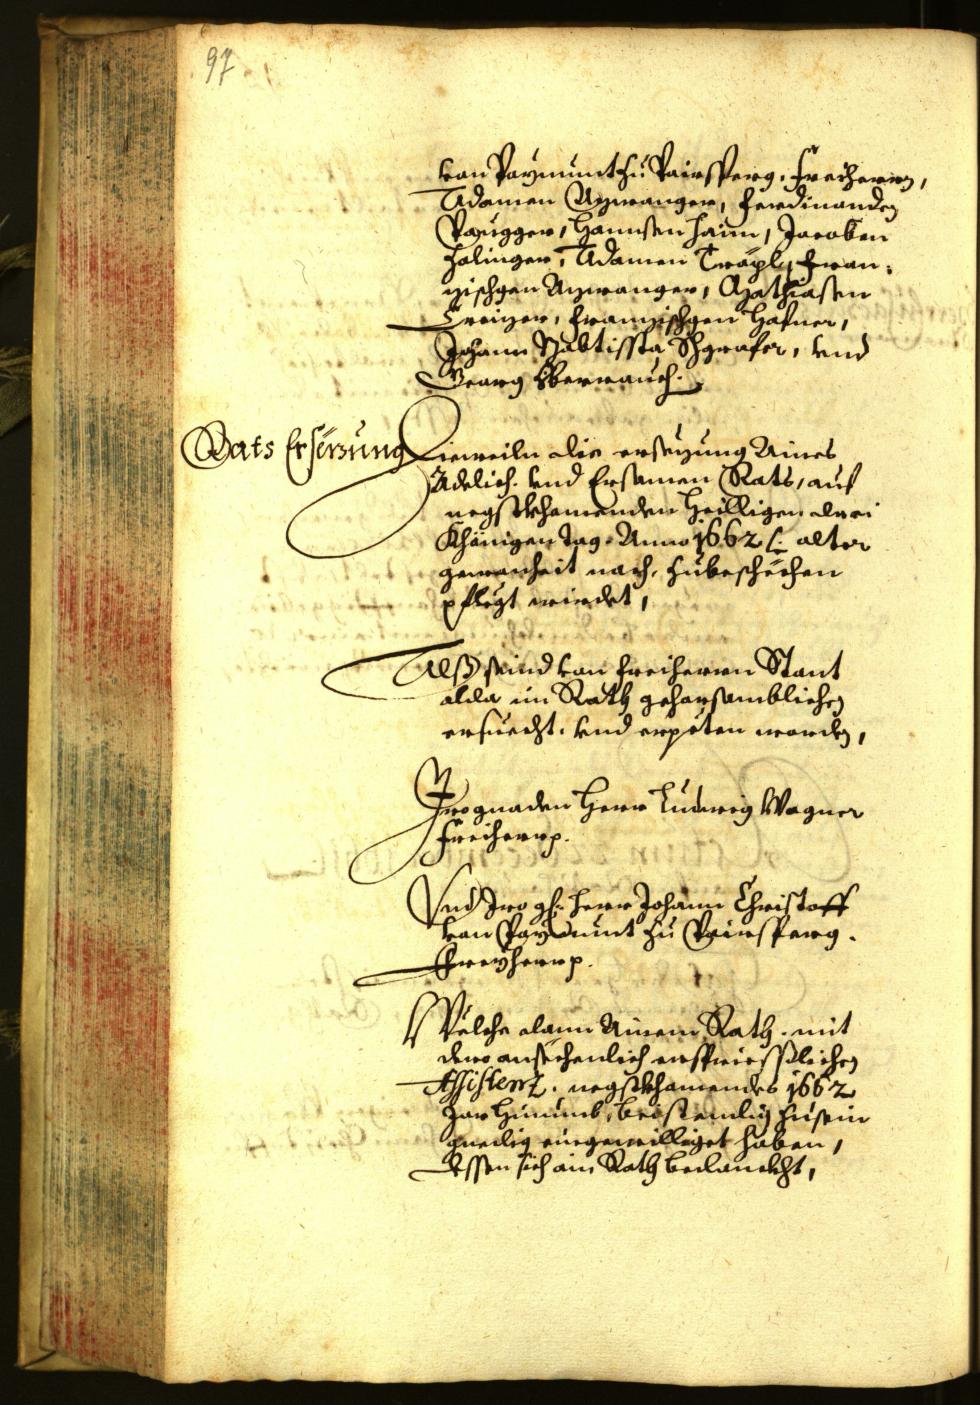 97
von Paymunt zu Pairsperg, Freiherrn,
Adamen Azwanger, Ferdinanden
Paugger, Hannsen Haim, Jacoben
Holinger, Adamen Träpl, Fran¬
zischgen Azwanger, Mathiasen
Creizer, Franzischgen Hafner,
Johann Babtissta Schgrafer, vnd
Georg Oberrauch.
Rats Ersezung
Dieweiln die ersezung Aines
Adelich. vnd Ersamen Rats, auf
negstkhomenden Heilligen drei
Khönigen tag. Anno 1662 alter
gewonheit nach, zubeschechen
pflegt wirdet,
Alß seind von Freiherrn Stant
alda im Rath gehorsamblichen
ersuecht. vnd erpeten worden,
Iro gnaden Herr Ludwig Wagner
Freiherr p.
Vnd Iro g: Herr Johann Christoff
von Paymunt zu Pairsperg.
Freyherr p.
Welche dann Ainem Rath. mit
dero ansechenlich ersprießlichen
Assistenz. negstkhomendes 1662
Jar hinumb, beistendig zusein
gnedig eingewilliget haben,
dessen sich ain Rath bedanckht,